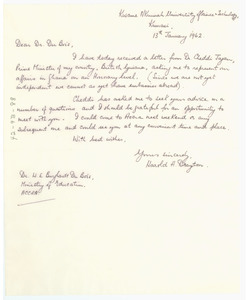 Kwame Nkrumah University of Science & Technology
Kumasi.
13th January 1962
Dear Dr. Du Bois,
I have today received a letter from Dr. Cheddi Jagan,
Prime Minister of my country, British Guiana, asking me to represent our
affairs in Ghana on an Honorary level. (Since we are not yet
independent we cannot as yet have embassies abroad)
Cheddi has asked me to seek your advice on a
number of questions and I should be grateful for an opportunity to
meet with you. I could come to Accra next weekend or any
subsequent one and could see you at any convenient time and place.
With best wishes,
Yours sincerely,
Harold A. Drayton
Dr. W. E. Burghardt Du Bois,
Ministry of Education,
ACCRA